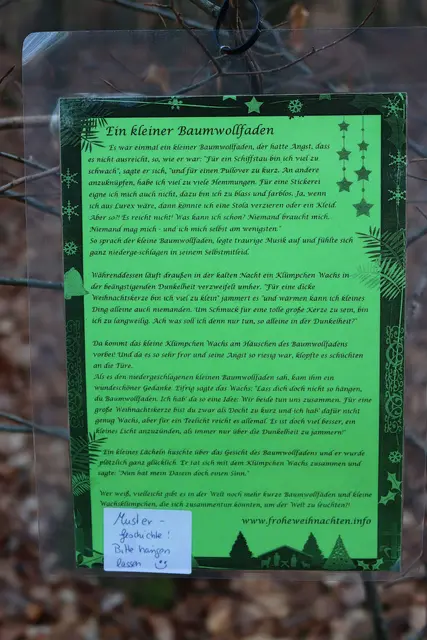 Ein kleiner Baumwollfaden
Es war einmal ein kleiner Baumwollfaden, der hatte Angst, dass
es nicht ausreicht, so, wie er war: "Für ein Schiffstau bin ich viel zu
schwach", sagte er sich, "und für einen Pullover zu kurz. An andere
anzuknüpfen, habe ich viel zu viele Hemmungen. Für eine Stickerei
eigne ich mich auch nicht, dazu bin ich zu blass und farblos. Ja, wenn
ich aus Lurex wäre, dann könnte ich eine Stola verzieren oder ein Kleid.
Aber so?! Es reicht nicht! Was kann ich schon? Niemand braucht mich.
Niemand mag mich - und ich mich selbst am wenigsten."
So sprach der kleine Baumwollfaden, legte traurige Musik auf und fühlte sich
ganz niedergeschlagen in seinem Selbstmitleid.
Währenddessen läuft draußen in der kalten Nacht ein Klümpchen Wachs in
der beängstigenden Dunkelheit verzweifelt umher. "Für eine dicke
Weihnachtskerze bin ich viel zu klein" jammert es "und wärmen kann ich kleines
Ding alleine auch niemanden. Um Schmuck für eine tolle große Kerze zu sein, bin
ich zu langweilig. Ach was soll ich denn nur tun, so alleine in der Dunkelheit?"
Da kommt das kleine Klümpchen Wachs am Häuschen des Baumwollfadens
vorbei! Und da es so sehr fror und seine Angst so riesig war, klopfte es schüchtern
an die Türe.
Als es den niedergeschlagenen kleinen Baumwollfaden sah, kam ihm ein
wunderschöner Gedanke. Eifrig sagte das Wachs: "Lass dich doch nicht so hängen,
du Baumwollfaden. Ich hab' da so eine Idee: Wir beide tun uns zusammen. Für eine
große Weihnachtskerze bist du zwar als Docht zu kurz und ich hab' dafür nicht
genug Wachs, aber für ein Teelicht reicht es allemal. Es ist doch viel besser, ein
kleines Licht anzuzünden, als immer nur über die Dunkelheit zu jammern!"
Ein kleines Lächeln huschte über das Gesicht des Baumwollfadens und er wurde
plötzlich ganz glücklich. Er tat sich mit dem Klümpchen Wachs zusammen und
sagte: "Nun hat mein Dasein doch einen Sinn."
Wer weiß, vielleicht gibt es in der Welt noch mehr kurze Baumwollfäden und kleine
Wachsklümpchen, die sich zusammentun könnten, um der Welt zu leuchten?!
www.froheweihnachten.info
Muster -
geschichte!
Bitte hängen
lassen